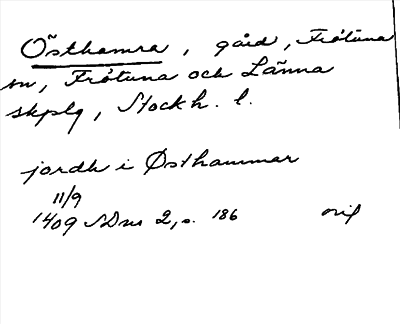 Östhamra, gård, Frötuna
sn, Frötuna och Länna
skplg, Stockh. l.
jordh i Østhammar
11/9
1409 SDns 2, s. 186 orig